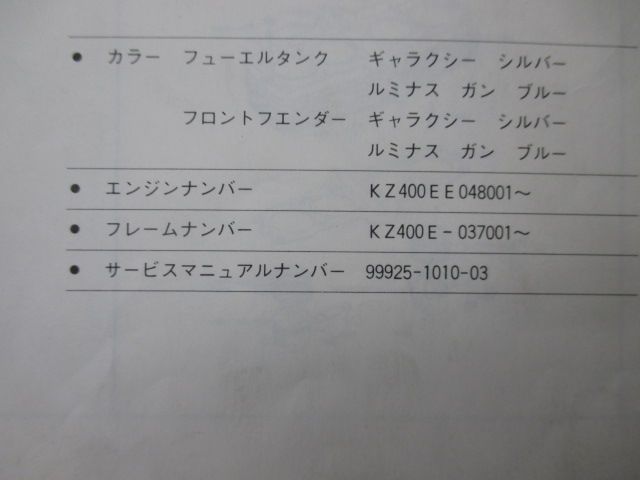 ● カラー フューエルタンク ギャラクシー シルバー
ルミナス ガン ブルー
フロントフエンダー ギャラクシー シルバー
ルミナス ガン ブルー
● エンジンナンバー KZ400EE048001〜
● フレームナンバー KZ400E-037001〜
● サービスマニュアルナンバー 99925-1010-03